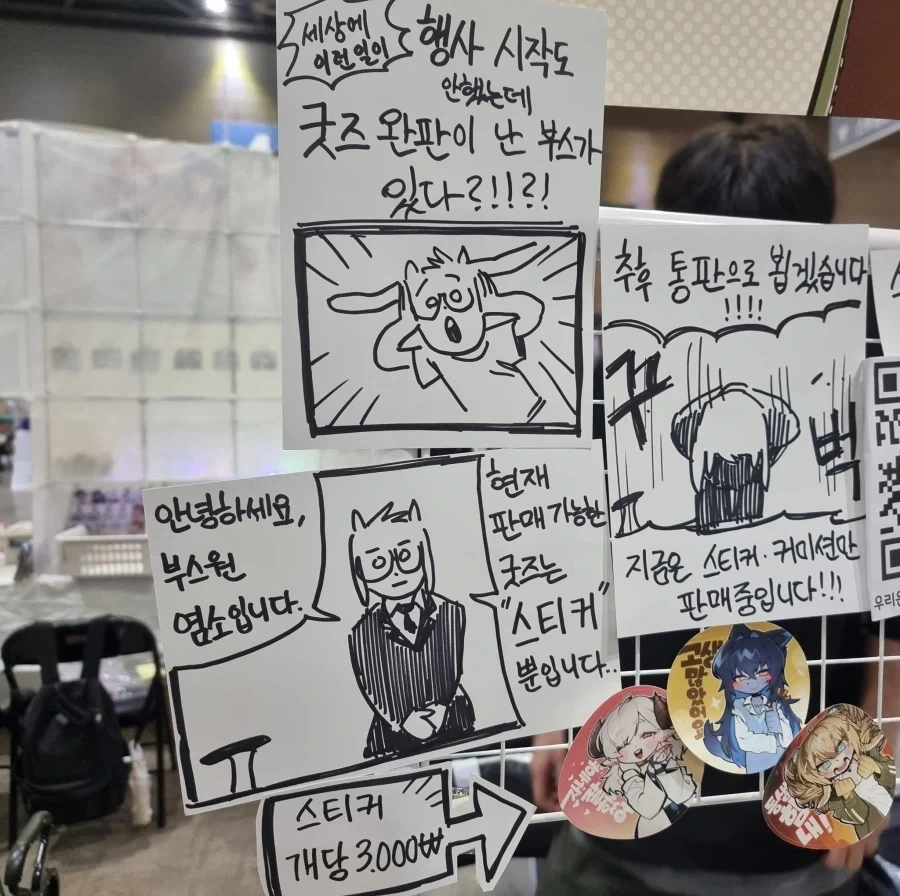 세상에
이런일이
행사 시작도
안했는데
굿즈 완판이 난 부스가
있다?!!?!
추후 통판으로 뵙겠습니다
!!!!
꾸벅
지금은 스티커·커미션만
판매중입니다!!!
안녕하세요,
부스원
염소입니다.
현재
판매 가능한
굿즈는
"스티커"
뿐입니다..
스티커
개당 3.000₩
고생
많았어요